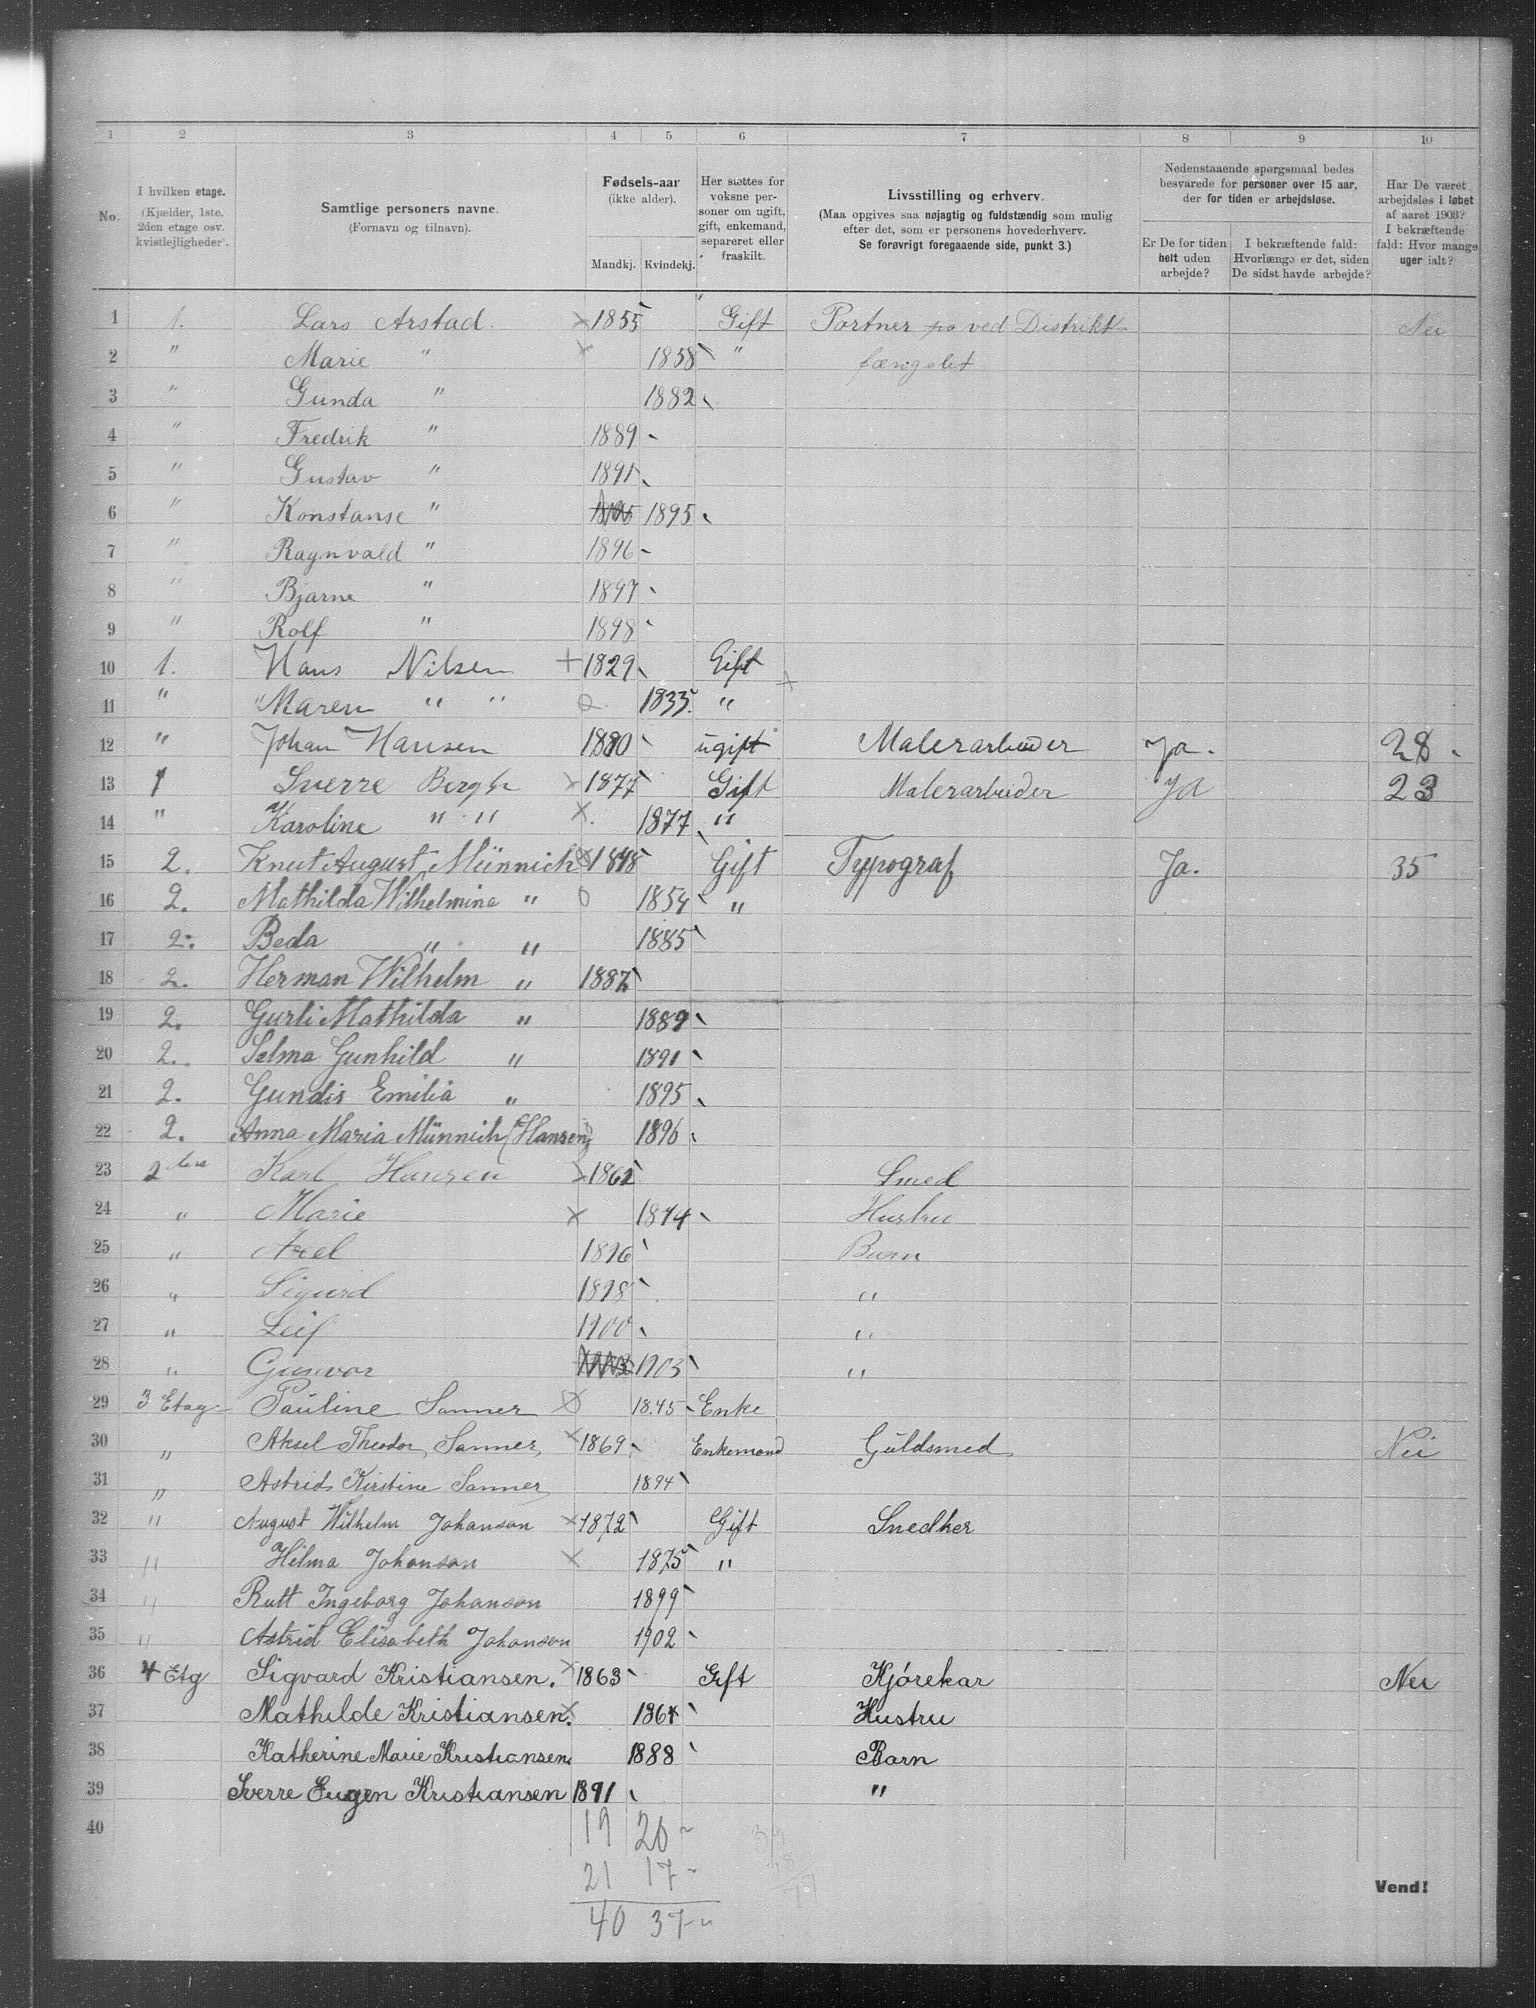 1 2 3 4 5 6 7 8 9 10
No.
I hvilken etage.
(Kjælder, 1ste,
2den etage osv.
kvistlejligheder.
Samtlige personers navne.
(Fornavn og tilnavn).
Fødsels-aar
(ikke alder).
Mandkj. Kvindekj.
Her sættes for
voksne per-
soner om ugift,
gift, enkemand,
separeret eller
fraskilt.
Livsstilling og erhverv.
(Maa opgives saa nøjagtig og fuldstændig som mulig
efter det, som er personens hovederhverv.
Se forøvrigt foregaaende side, punkt 3.)
Nedenstaaende spørgsmaal bedes
besvarede for personer over 15 aar,
der for tiden er arbejdsløse.
Er De for tiden
helt uden
arbejde?
I bekræftende fald:
Hvorlænge er det, siden
De sidst havde arbejde?
Har De været
arbejdsløs i løbet
af aaret 1903?
I bekræftende
fald: Hvor mange
uger ialt?
1 1. Lars Arstad. × 1855 Gift Portner ved Distrikts Nei
2 " Marie " × 1858 " fængslet
3 " Gunda " 1882
4 " Fredrik " 1889
5 " Gustav " 1891
6 " Konstanse " 1895
7 " Ragnvald " 1896
8 " Bjarne " 1897
9 " Rolf " 1898
10 1. Hans Nilsen + 1829 Gift +
11 " Maren " " 1833. "
12 " Johan Hansen 1880 ugift Malerarbeider Ja. 28
13 1 Sverre Bergh × 1877 Gift Malerarbeider Ja 23
14 " Karoline " " × 1877 "
15 2. Knut August Münnich 1848 Gift Typograf Ja. 35
16 2. Mathilda Wilhelmina " 0 1854 "
17 2. Beda " " 1885
18 2. Herman Wilhelm " 1887
19 2. Gurli Mathilda " 1889
20 2. Selma Gunhild " 1891
21 2. Gundis Emilia " 1895
22 2. Anna Maria Münnich (Hansen) 1896
23 2den Karl Hansen × 1862 Smed
24 " Marie × 1874 Hustru
25 " Axel 1896 Barn
26 " Sigurd 1898 "
27 " Leif 1900 "
28 " Gunvor 1903 "
29 3 Etag Pauline Sanner × 1845 Enke
30 " Aksel Theodor Sanner × 1869 Enkemand Guldsmed Nei
31 " Astrid Kirstine Sanner 1894
32 " August Wilhelm Johanson × 1872 Gift Snedker
33 " Hilma Johanson × 1875 "
34 " Rutt Ingeborg Johanson 1899
35 " Astrid Elisabeth Johanson 1902
36 4 Etg Sigvard Kristiansen. × 1863 Gift Kjørekar Nei
37 Mathilde Kristiansen. × 1864 Hustru
38 Katherine Marie Kristiansen 1888 Barn
39 Sverre Eugen Kristiansen 1891 "
40
19 20
21 17
40 37
Vend!